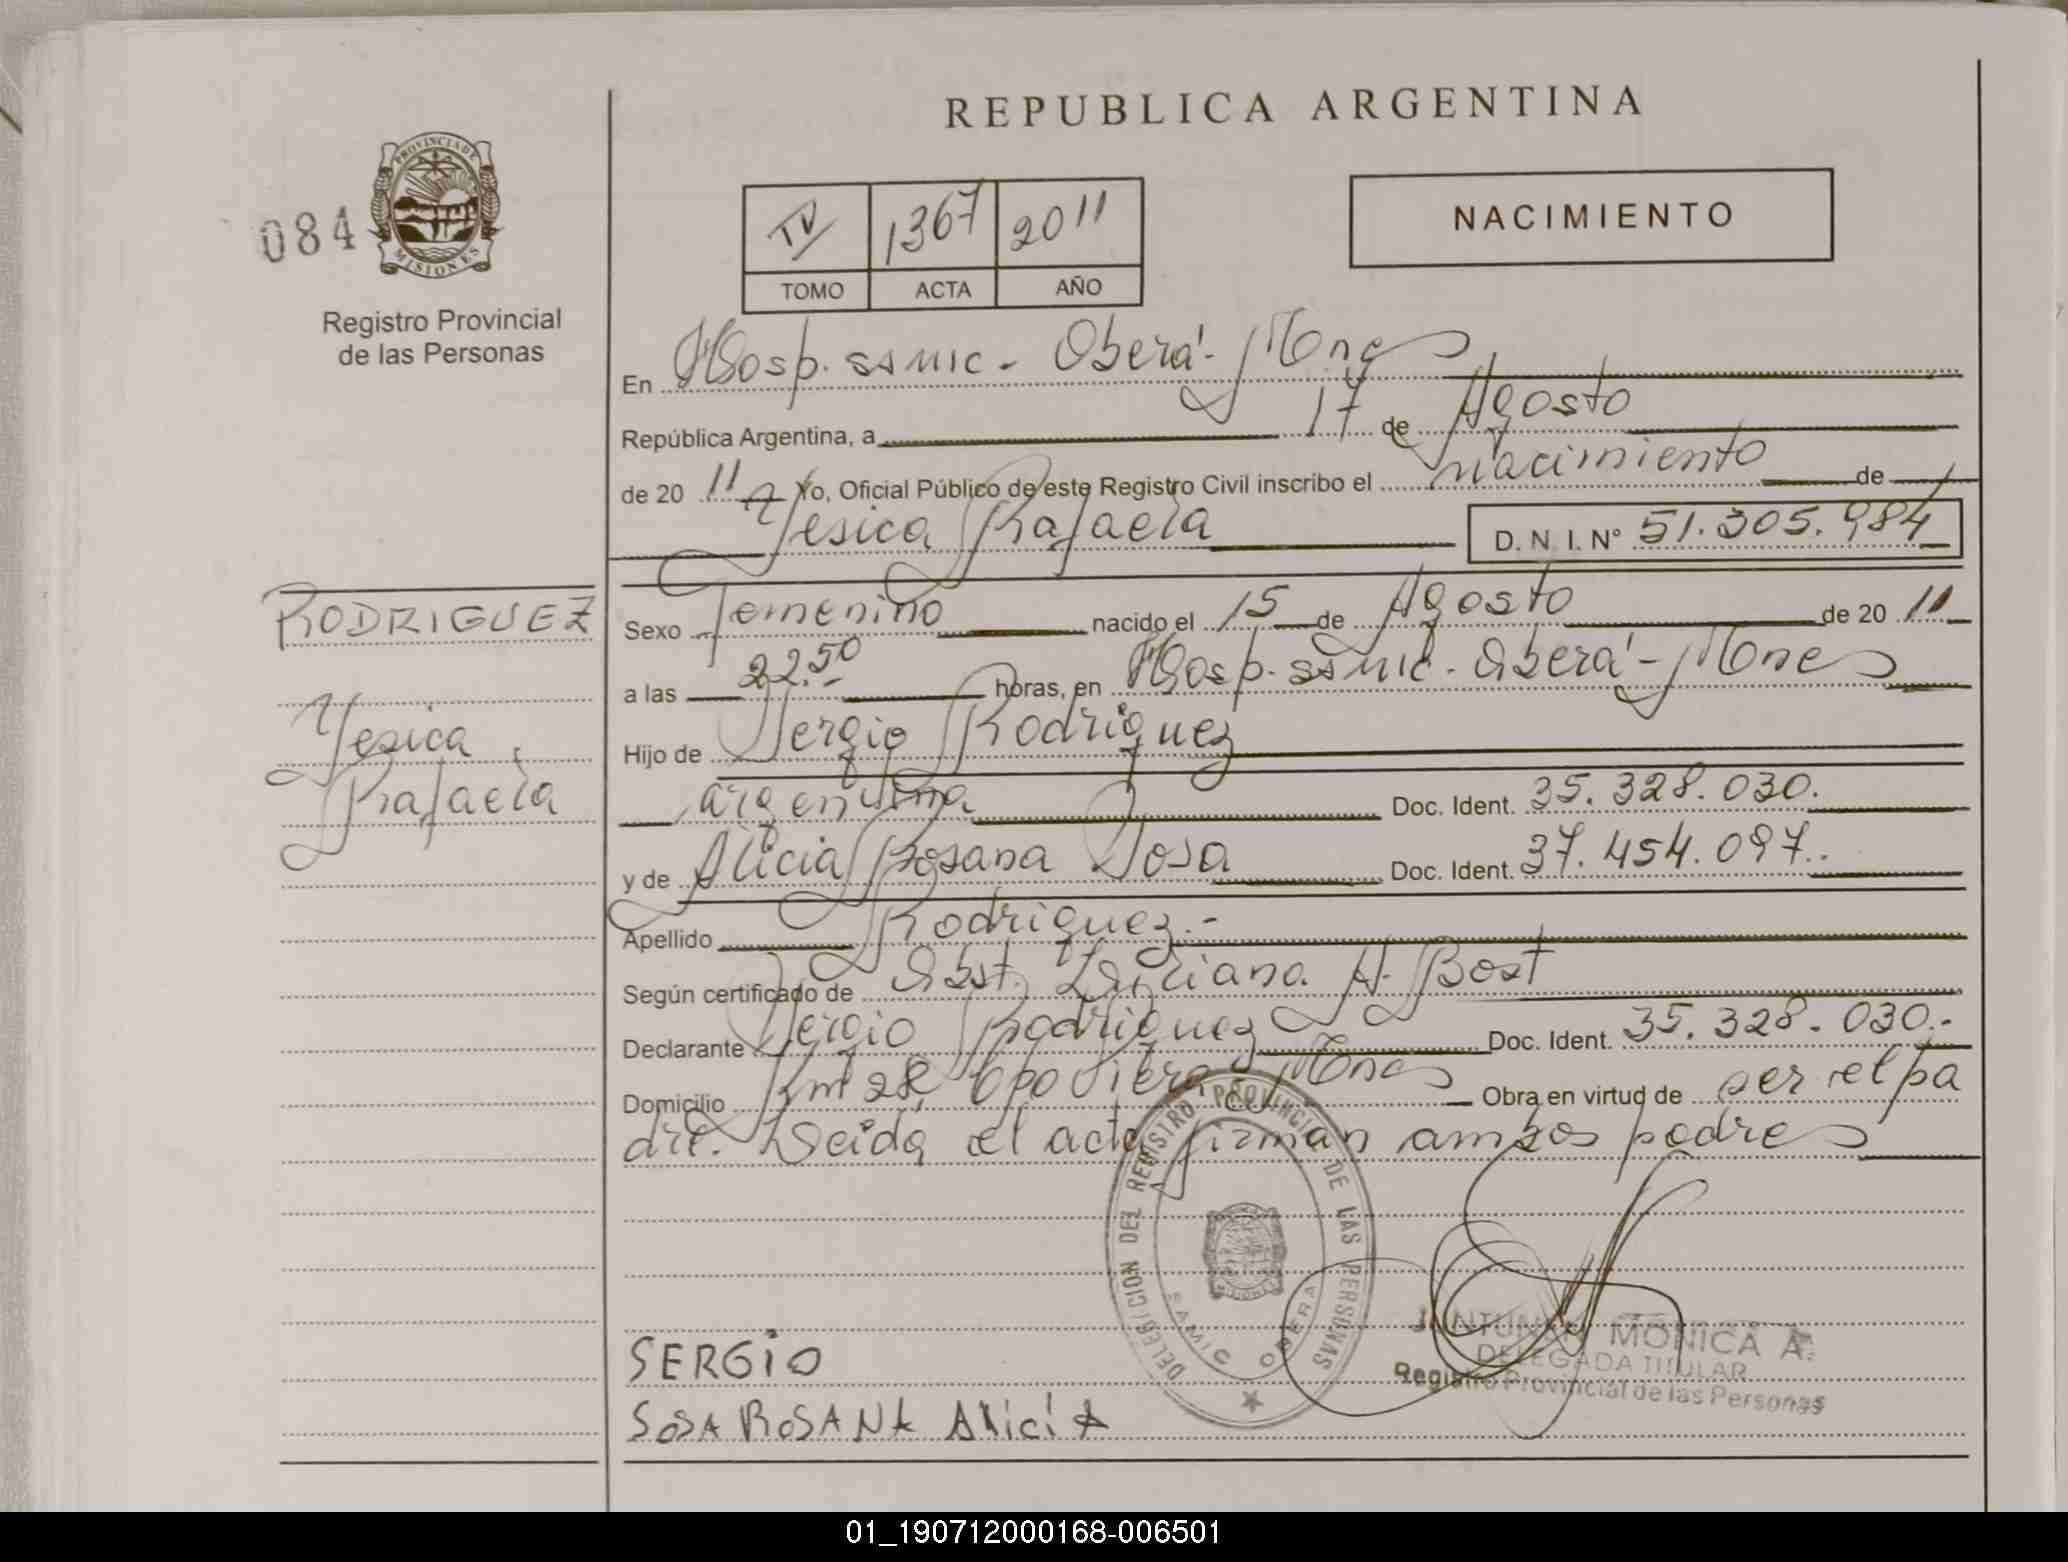 REPUBLICA ARGENTINA
084
PROVINCIA DE
MISIONES
Registro Provincial
de las Personas
TV 1367 2011
TOMO ACTA AÑO
NACIMIENTO
En Hosp. SAMIC - Oberá - Mnes
República Argentina, a 17 de Agosto
de 20 11 Yo, Oficial Público de este Registro Civil inscribo el nacimiento de
Yesica Rafaela D. N. I. Nº 51.305.984
RODRIGUEZ
Yesica
Rafaela
Sexo Femenino nacido el 15 de Agosto de 20 11
a las 22.50 horas, en Hosp. SAMIC - Oberá - Mnes
Hijo de Sergio Rodriguez
argentina Doc. Ident. 35.328.030.
y de Alicia Rosana Sosa Doc. Ident. 37.454.097.
Apellido Rodriguez.-
Según certificado de Obst. A. Bost
Declarante Sergio Rodriguez Doc. Ident. 35.328.030.-
Domicilio Km 28 Cpo Viera Mnes Obra en virtud de ser el pa
dre. Leida el acta firman ambos padres
DELEGACION DEL REGISTRO PROVINCIAL DE LAS PERSONAS
SAMIC OBERA
MONICA A.
DELEGADA TITULAR
Registro Provincial de las Personas
SERGiO
SOSA ROSANA AliciA
01_190712000168-006501